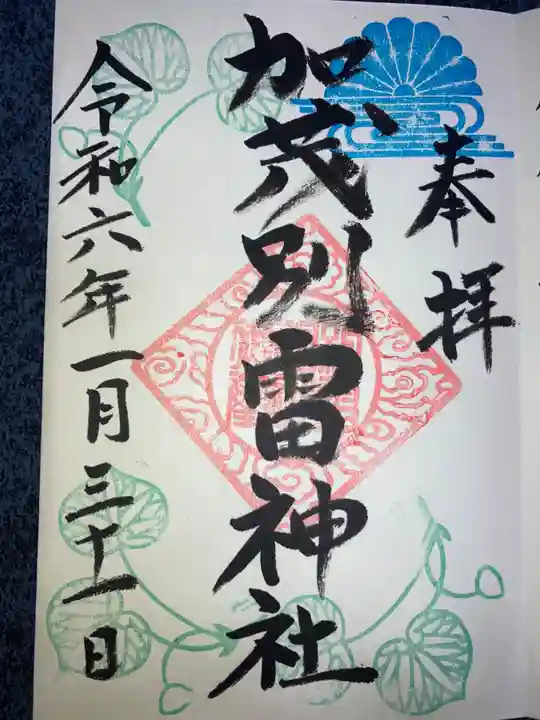 奉拝
加茂別雷神社
令和六年一月三十一日